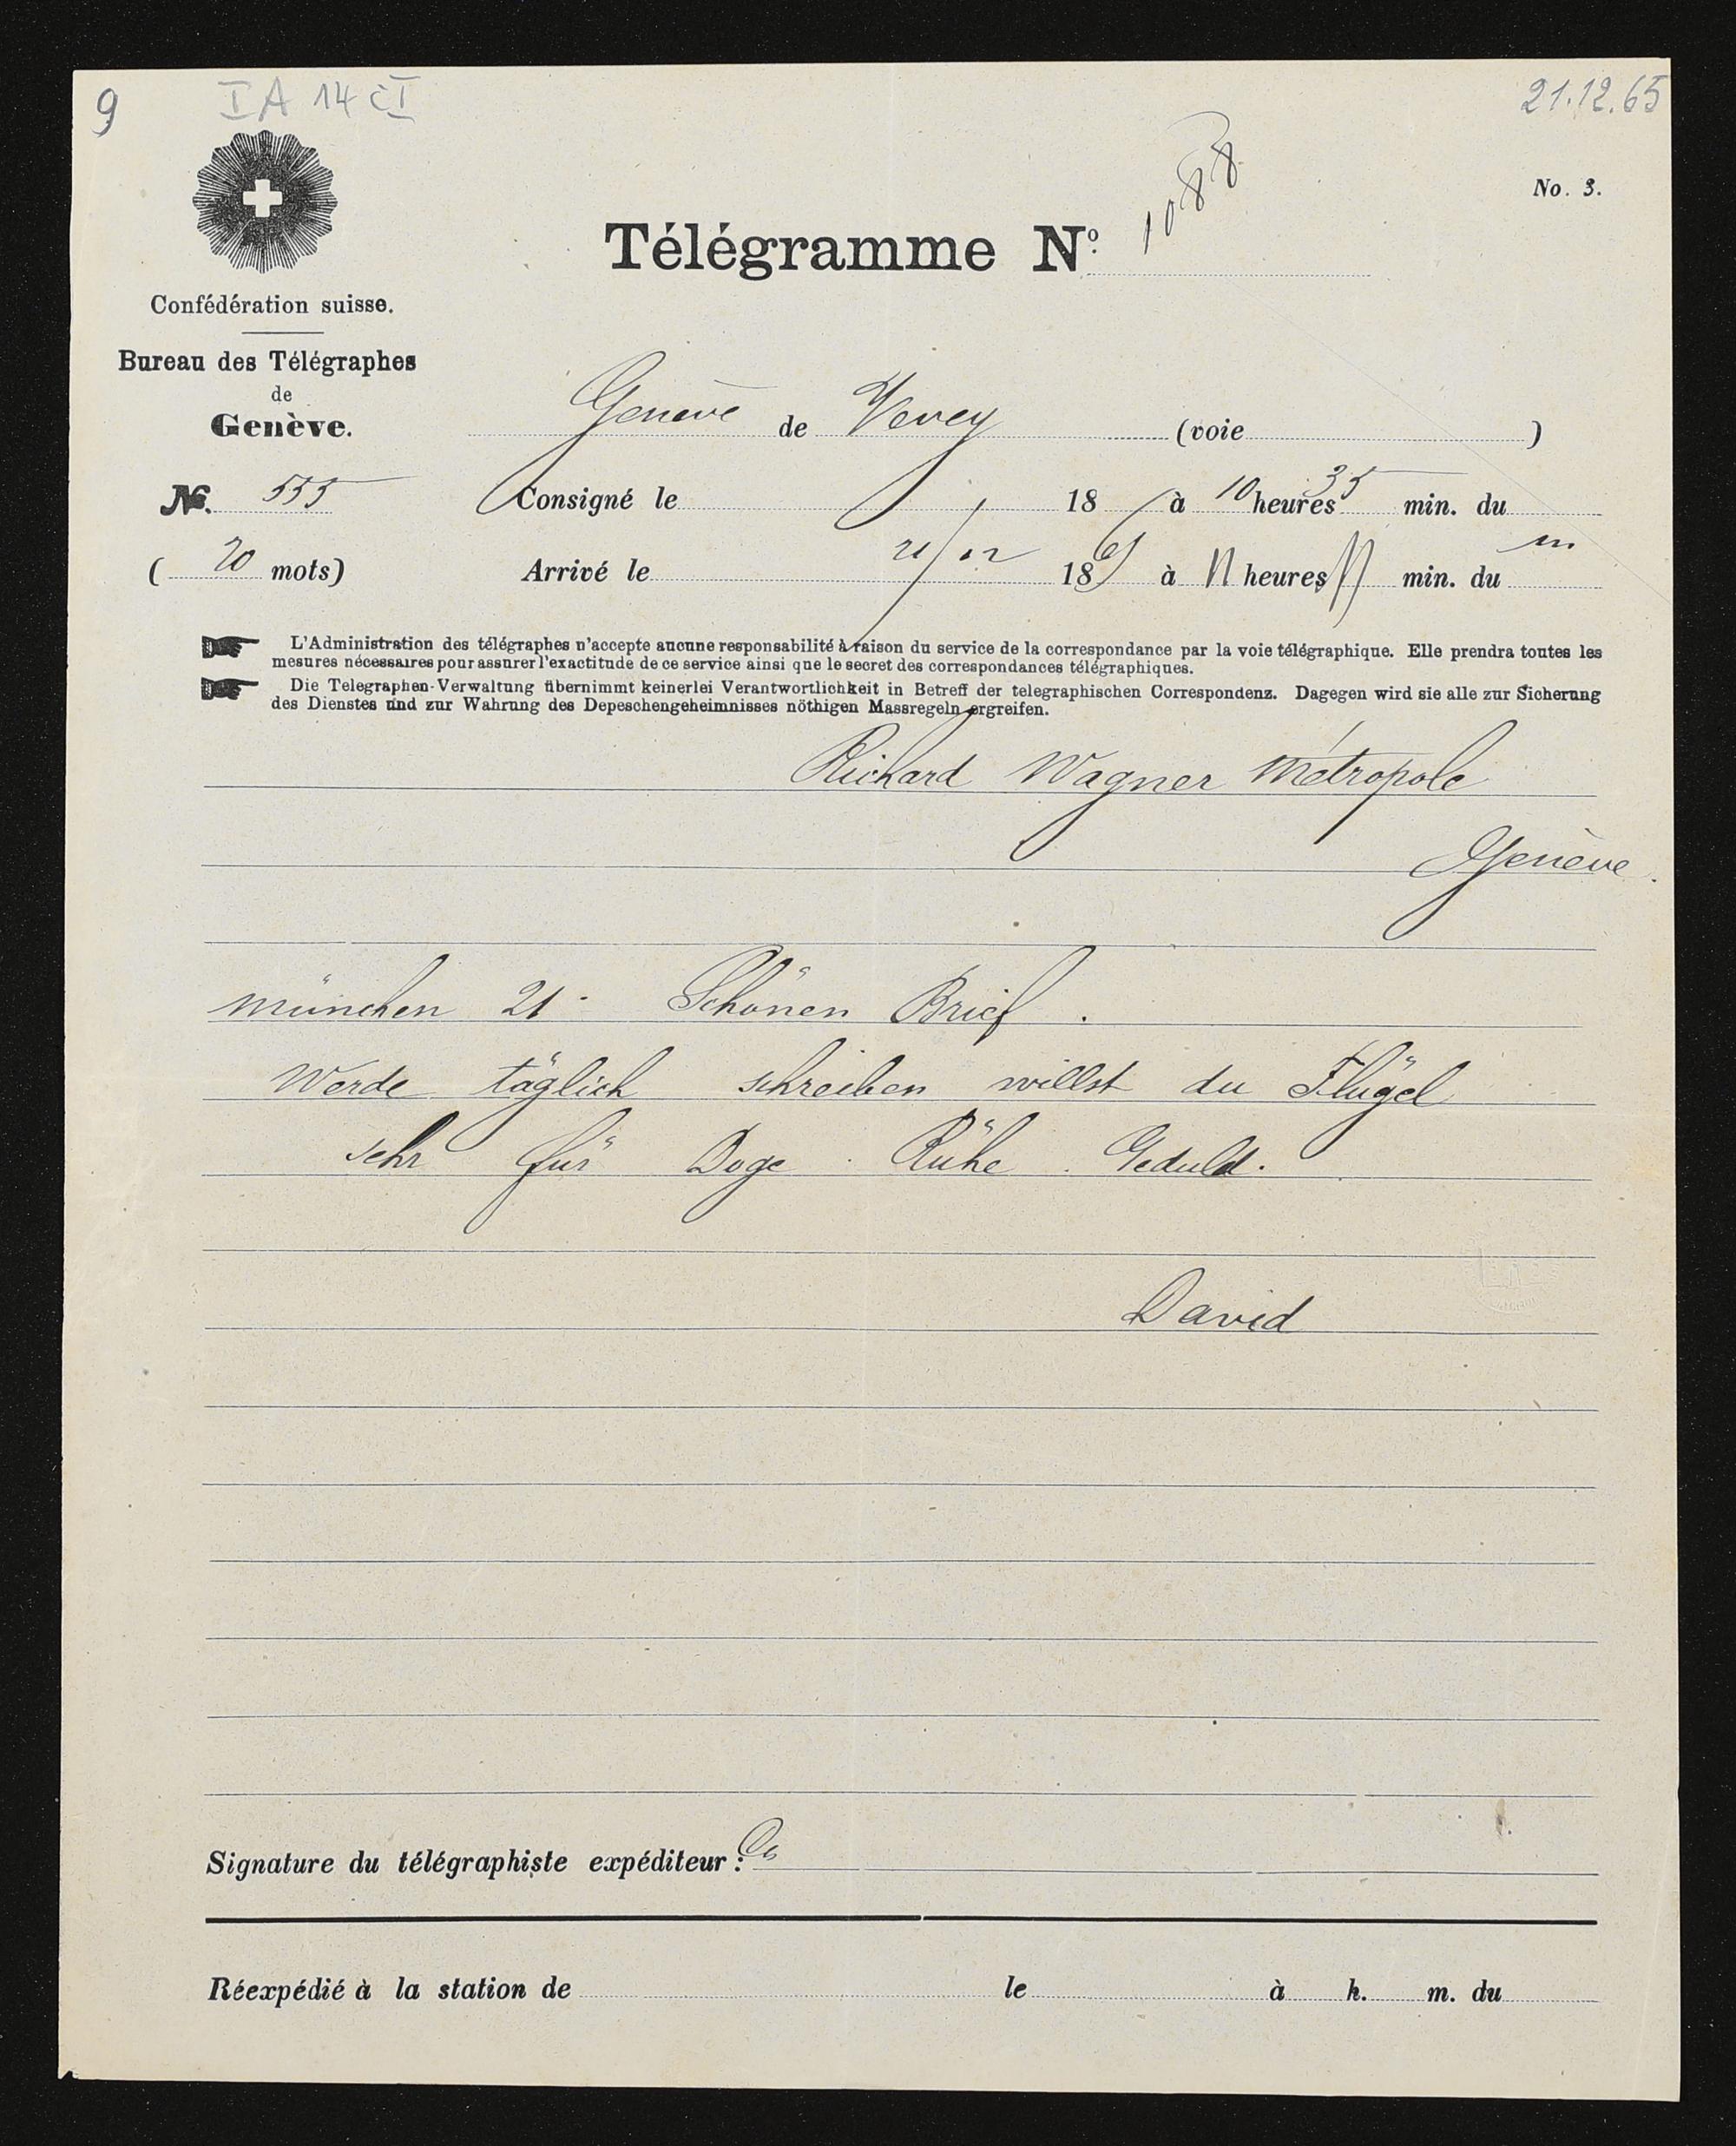 9 I A 14 c I 21.12.65
No. 3.
Télégramme No. 1088
Confédération suisse.
Bureau des Télégraphes
de
Genève.
Genève de Vevey (voie )
No. 555 Consigné le 18 à 10 heures 35 min. du
( 20 mots) Arrivé le 21/12 18 à 11 heures min. du m
L'Administration des télégraphes n'accepte aucune responsabilité à raison du service de la correspondance par la voie télégraphique. Elle prendra toutes les
mesures nécessaires pour assurer l'exactitude de ce service ainsi que le secret des correspondances télégraphiques.
Die Telegraphen-Verwaltung übernimmt keinerlei Verantwortlichkeit in Betreff der telegraphischen Correspondenz. Dagegen wird sie alle zur Sicherung
des Dienstes und zur Wahrung des Depeschengeheimnisses nöthigen Massregeln ergreifen.
Richard Wagner Métropole
Genève.
münchen 21. Schönen Brief.
Werde täglich schreiben willst du Flügel
sehr für Doge. Rühe. Geduld.
David
Signature du télégraphiste expéditeur:
Réexpédié à la station de le à h. m. du